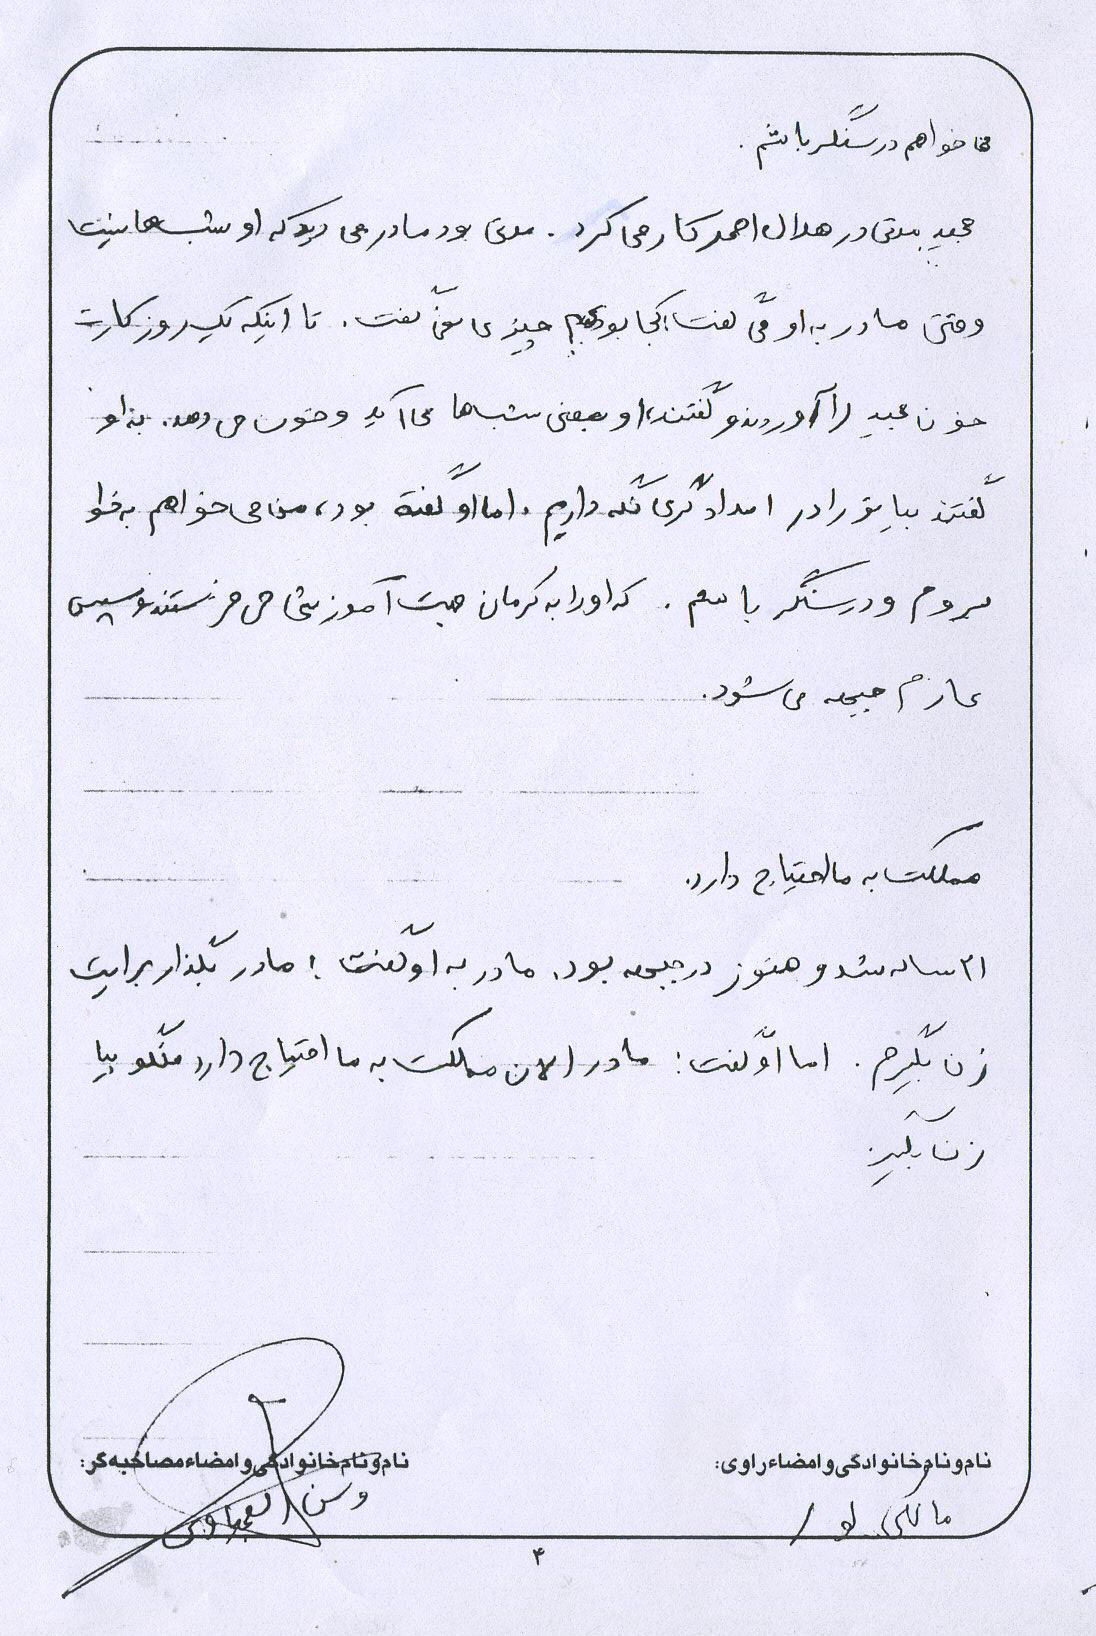 می‌خواهم در سنگر باشم.
مجید مدتی در هلال احمر کار می کرد. مدتی بود مادر می دید که او شب ها نیست
وقتی مادر به او می گفت: کجا بودی چیزی نمی گفت. تا اینکه یک روز کارت
خون مجید را آوردند و گفتند، او بعضی شب ها می آید و خون می دهد. به او
گفتند بیا تو را در امدادگری نگه داریم. اما او گفته بود، من می خواهم به خدا
بروم و در سنگر باشم. که او را به کرمان جهت آموزشی می فرستند و سپس
عازم جبهه می شود.
مملکت به ما احتیاج دارد.
۲۱ ساله شد و هنوز در جبهه بود. مادر به او گفت: مادر بگذار برایت
زن بگیرم. اما او گفت: مادر الان مملکت به ما احتیاج دارد نگو بیا
زن بگیر.
نام و نام خانوادگی و امضاء راوی:
نام و نام خانوادگی و امضاء مصاحبه گر:
۴